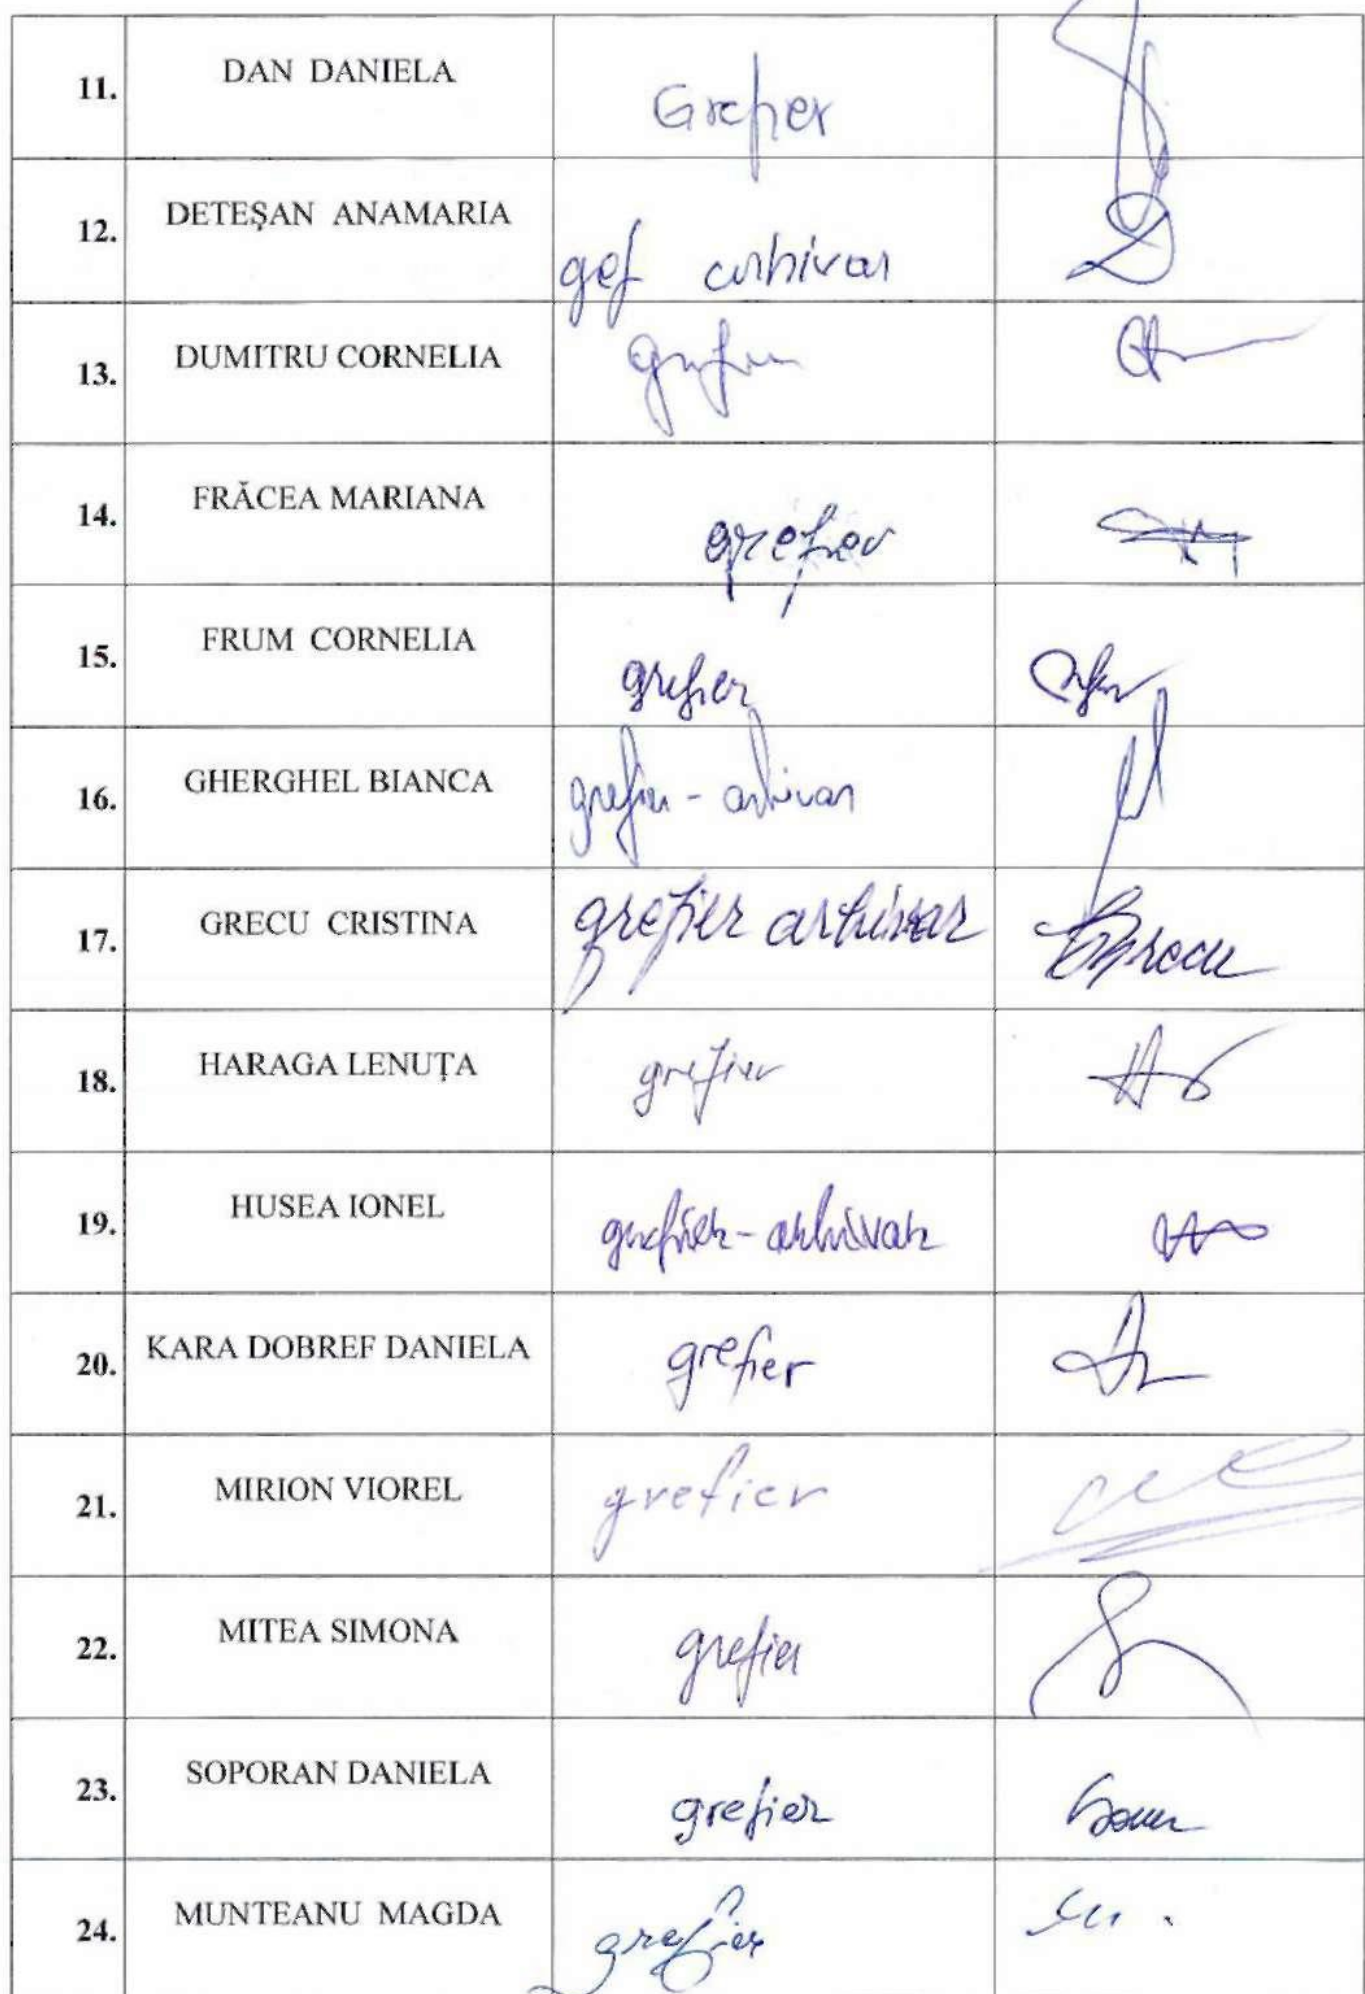 11. DAN DANIELA Grefier
12. DETEȘAN ANAMARIA gref arhivar
13. DUMITRU CORNELIA grefier
14. FRĂCEA MARIANA grefier
15. FRUM CORNELIA grefier
16. GHERGHEL BIANCA grefier - arhivar
17. GRECU CRISTINA grefier arhivar Grecu
18. HARAGA LENUȚA grefier
19. HUSEA IONEL grefier-arhivar
20. KARA DOBREF DANIELA grefier
21. MIRION VIOREL grefier
22. MITEA SIMONA grefier
23. SOPORAN DANIELA grefier
24. MUNTEANU MAGDA grefier